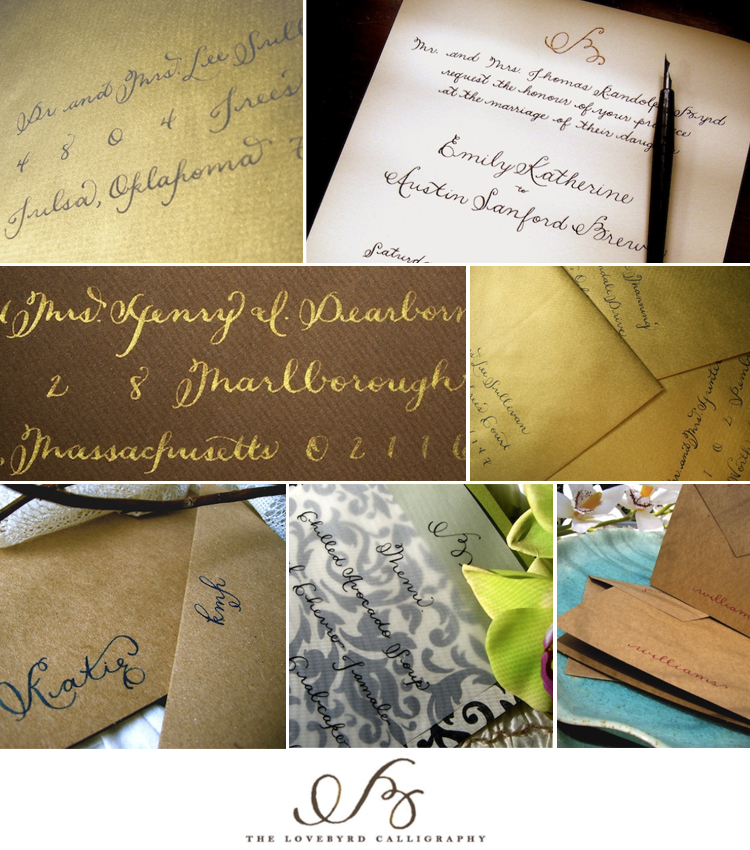 Dr. and Mrs. Lee Sull
4 8 0 4 Trees
Tulsa, Oklahoma 7
B
Mr. and Mrs. Thomas Randolph Byrd
request the honour of your
at the marriage of their
Emily Katherine
to
Austin Sanford Brew
Saturda
Mrs. Henry A. Dearborn
2 8 Marlborough
Massachusetts 0 2 1 1 6
Manning
Drive
Lee Sullivan
Court
and Mrs. Hunter
1 0 2
Katie
B
Menu
Chilled Avocado Soup
Chevre Tamales
Crabcake
williams
williams
B
THE LOVEBYRD CALLIGRAPHY